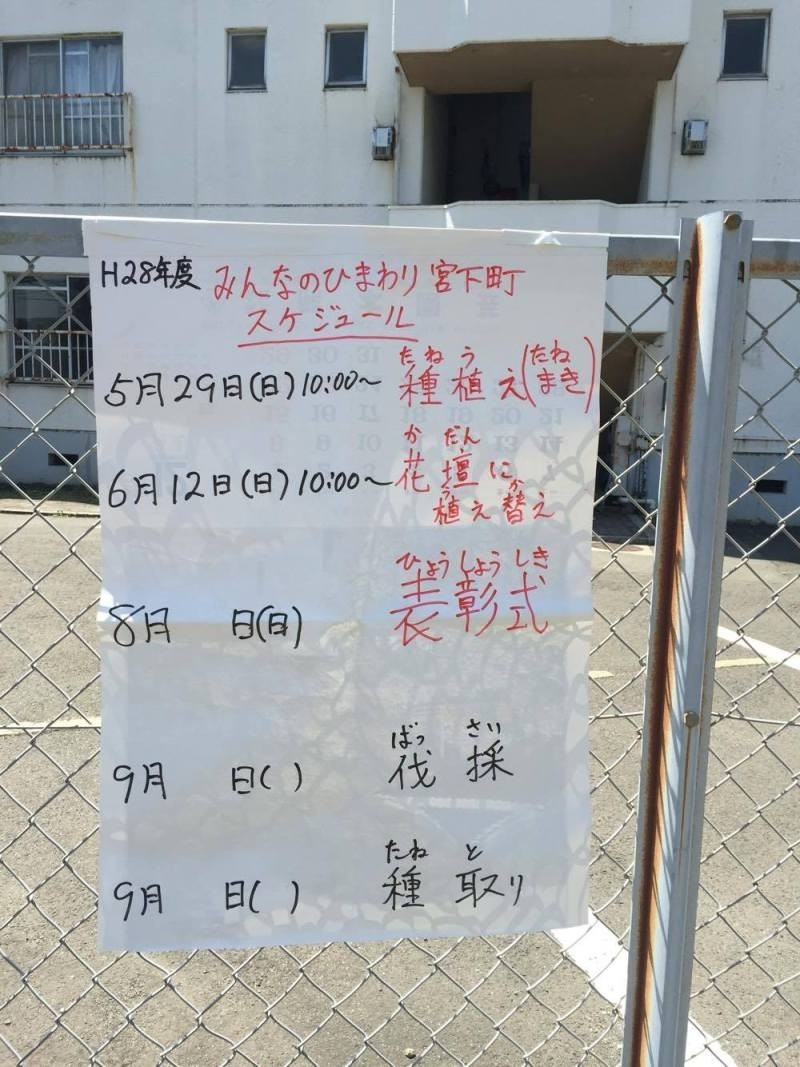 H28年度 みんなのひまわり 宮下町
スケジュール
たね う たね
5月29日(日)10:00~ 種植え(まき)
か だん
6月12日(日)10:00~ 花壇に
う か
植え替え
ひょう しょう しき
8月 日(日) 表彰式
ばっ さい
9月 日( ) 伐採
たね と
9月 日( ) 種取り